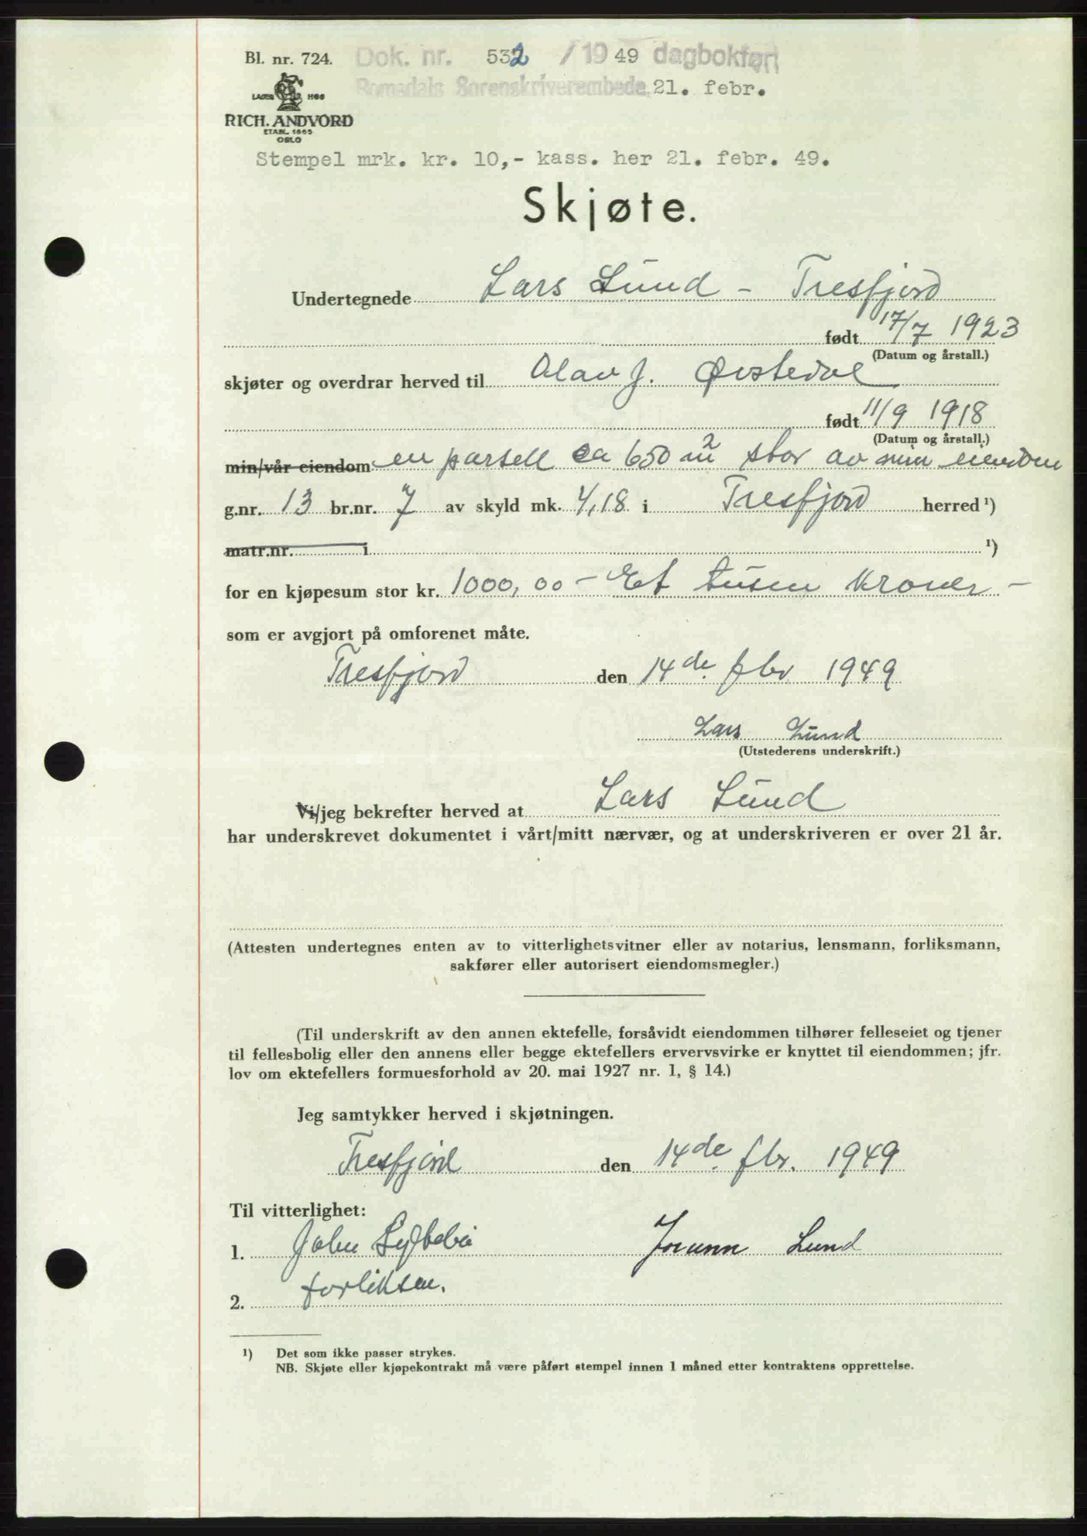 Bl. nr. 724. Dok. nr. 532 / 1949 dagbokført
LAGER NO8
Romsdals Sorenskriverembede 21. febr.
RICH. ANDVORD
ETABL. 1865
OSLO
Stempel mrk. kr. 10,- kass. her 21. febr. 49.
Skjøte.
Undertegnede Lars Lund - Tresfjord
født 17/7 1923
(Datum og årstall.)
skjøter og overdrar herved til Olav J. Øvstedal
født 11/9 1918
(Datum og årstall.)
min/vår eiendom en parsell ca 650 m2 stor av min eiendom
g.nr. 13 br.nr. 7 av skyld mk. 4,18 i Tresfjord herred ¹)
matr.nr. i ¹)
for en kjøpesum stor kr. 1000,00 - Et tusen kroner -
som er avgjort på omforenet måte.
Tresfjord den 14de febr 1949
Lars Lund
(Utstederens underskrift.)
Vi/jeg bekrefter herved at Lars Lund
har underskrevet dokumentet i vårt/mitt nærvær, og at underskriveren er over 21 år.
(Attesten undertegnes enten av to vitterlighetsvitner eller av notarius, lensmann, forliksmann,
sakfører eller autorisert eiendomsmegler.)
(Til underskrift av den annen ektefelle, forsåvidt eiendommen tilhører felleseiet og tjener
til fellesbolig eller den annens eller begge ektefellers ervervsvirke er knyttet til eiendommen; jfr.
lov om ektefellers formuesforhold av 20. mai 1927 nr. 1, § 14.)
Jeg samtykker herved i skjøtningen.
Tresfjord den 14de fbr. 1949
Til vitterlighet:
1. John Jorunn Lund
2. forliksm.
¹) Det som ikke passer strykes.
NB. Skjøte eller kjøpekontrakt må være påført stempel innen 1 måned etter kontraktens opprettelse.